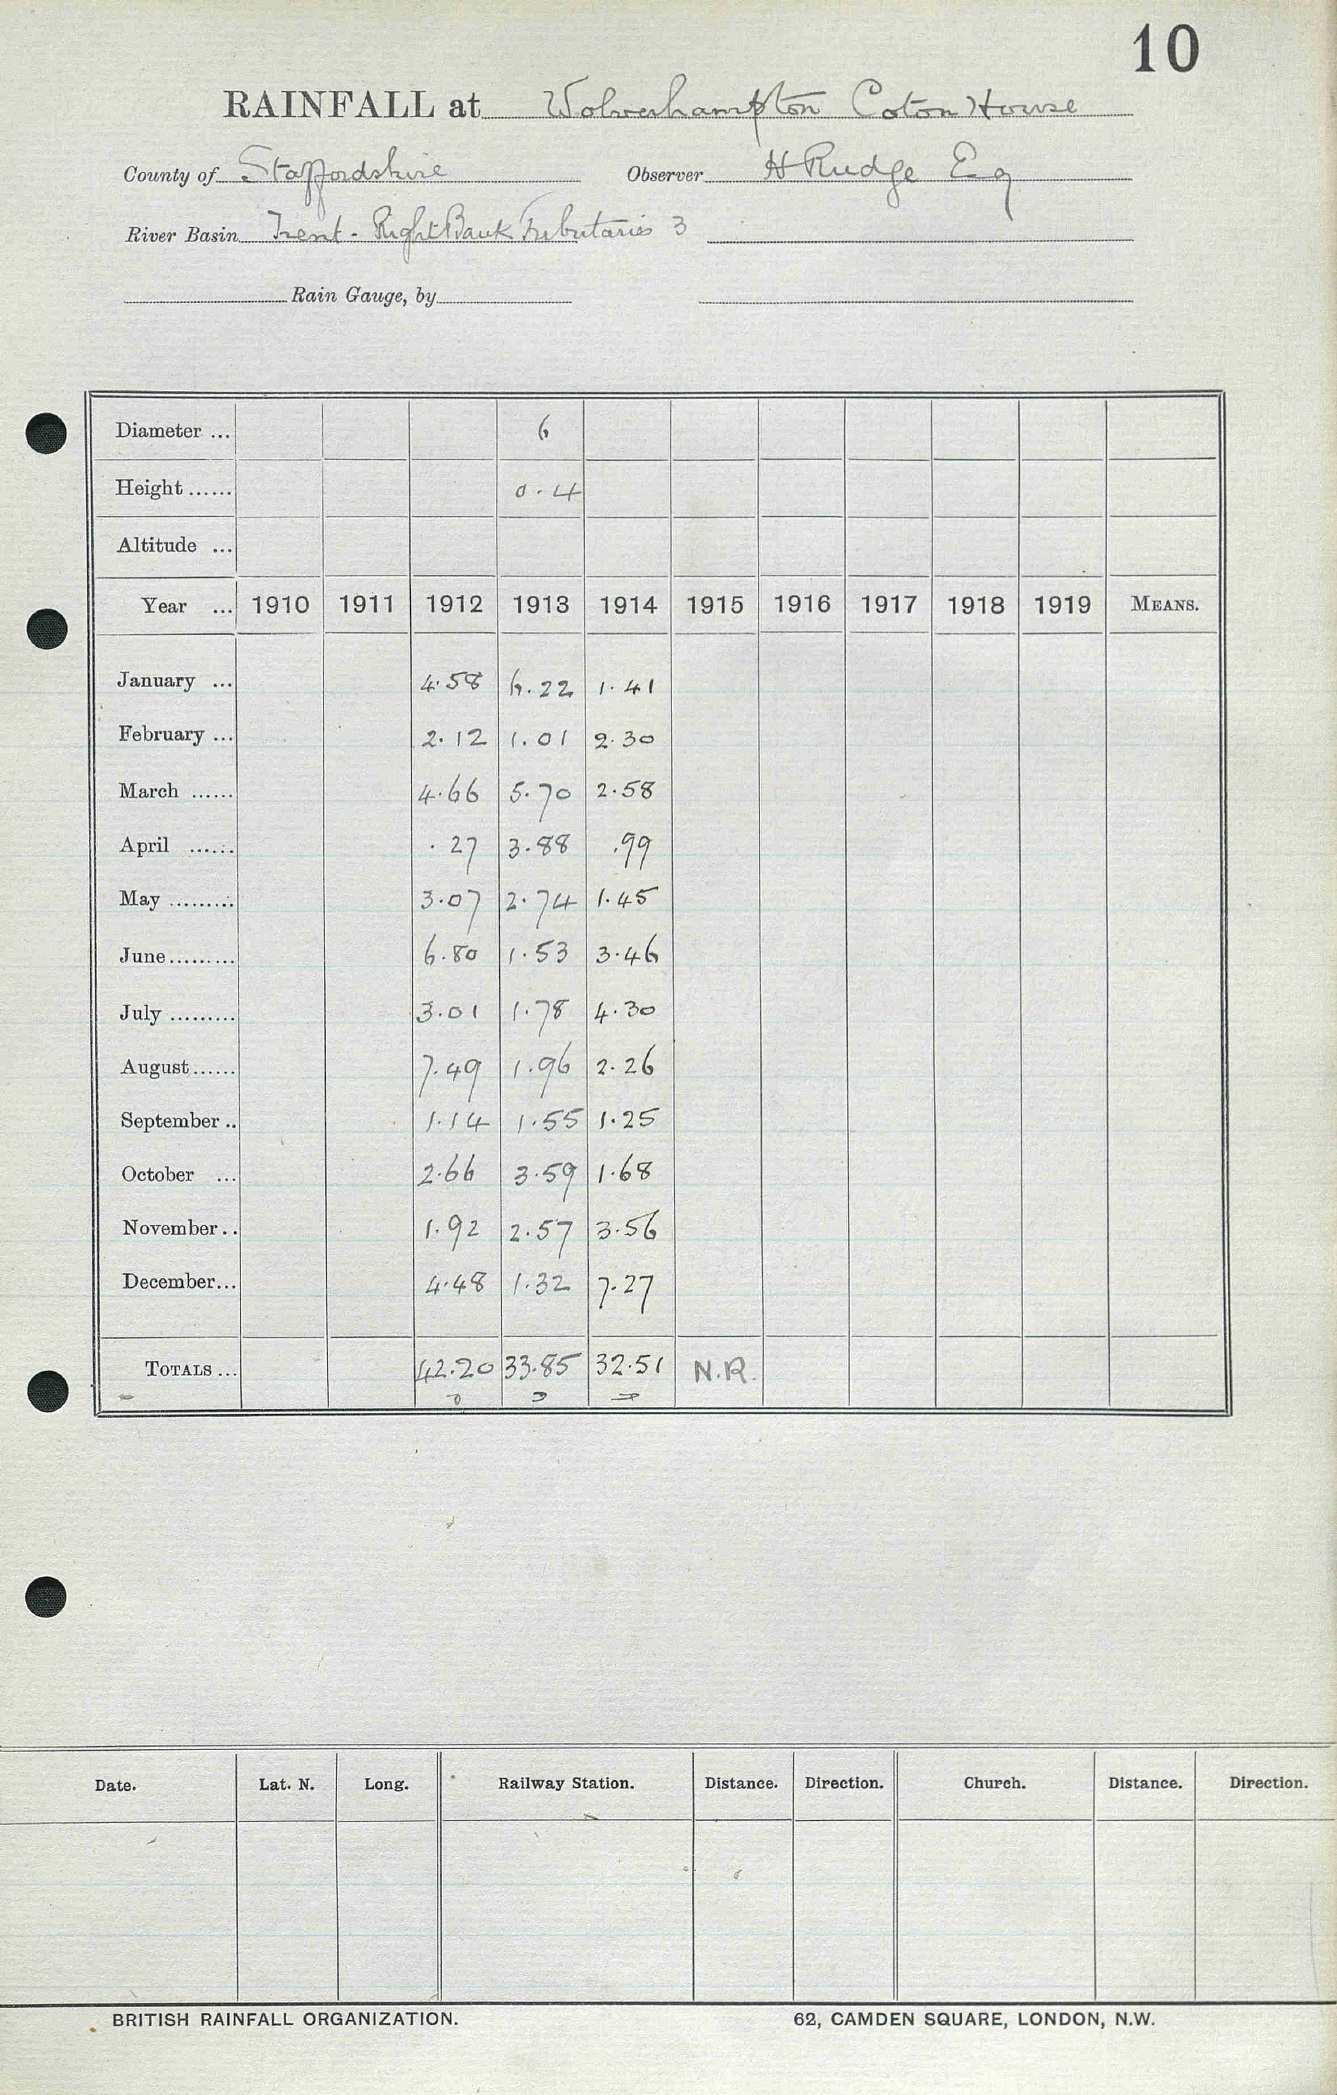 10
RAINFALL at Wolverhampton Coton House
County of Staffordshire Observer H Rudge Esq
River Basin Trent - Right Bank Tributaries 3
Rain Gauge, by
Diameter ... 6
Height ...... 0.4
Altitude ...
Year ... 1910 1911 1912 1913 1914 1915 1916 1917 1918 1919 MEANS.
January ... 4.58 6.22 1.41
February ... 2.12 1.01 2.30
March ...... 4.66 5.70 2.58
April ...... .27 3.88 .99
May ......... 3.07 2.74 1.45
June......... 6.80 1.53 3.46
July ......... 3.01 1.78 4.30
August...... 7.49 1.96 2.26
September .. 1.14 1.55 1.25
October ... 2.66 3.59 1.68
November .. 1.92 2.57 3.56
December... 4.48 1.32 7.27
TOTALS ... 42.20 33.85 32.51 N.R.
Date. Lat. N. Long. Railway Station. Distance. Direction. Church. Distance. Direction.
BRITISH RAINFALL ORGANIZATION. 62, CAMDEN SQUARE, LONDON, N.W.